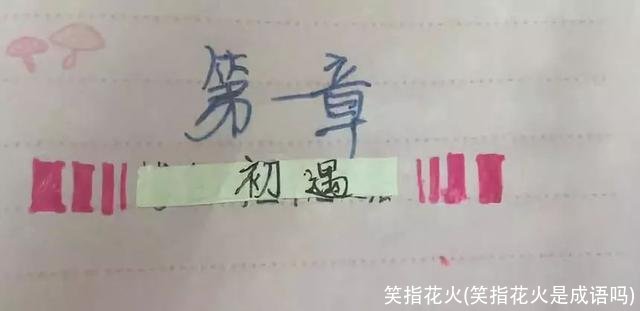 第一章
初遇
笑指花火(笑指花火是成语吗)